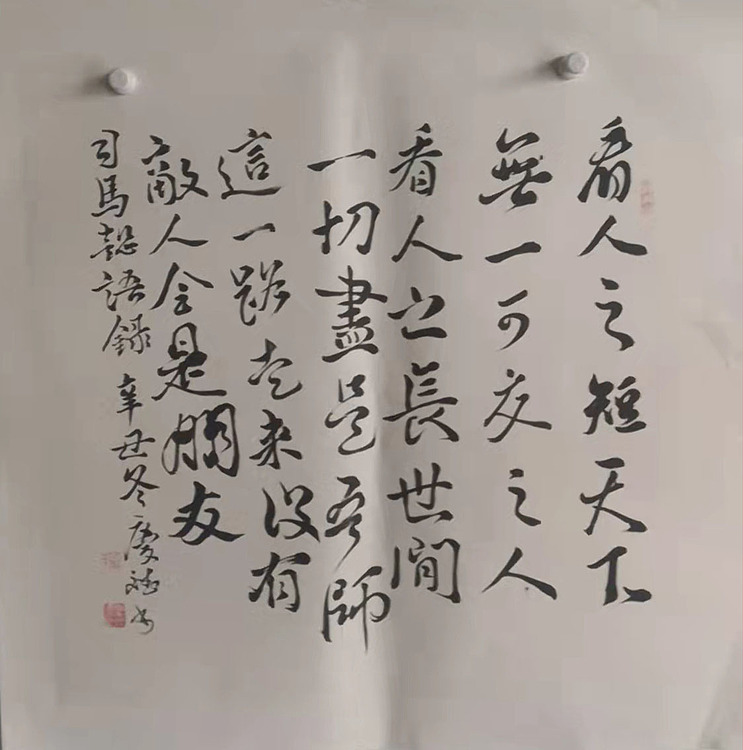 看人之短天下
無一可交之人
看人之長世間
一切盡是吾師
這一路走來沒有
敵人是朋友
司馬懿語錄 辛丑冬慶書